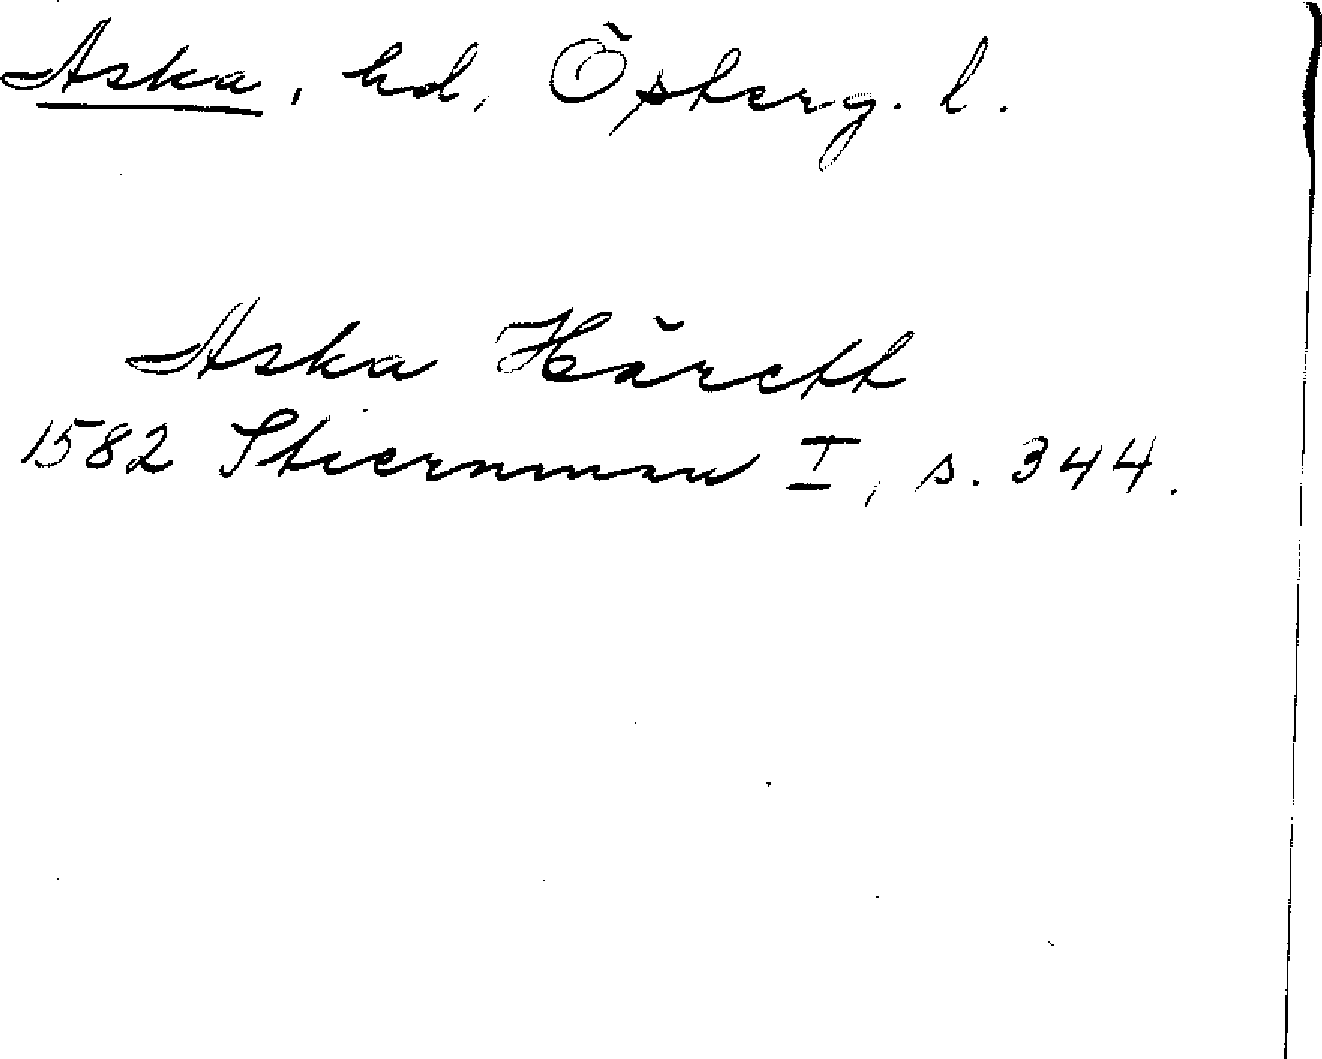 Aska, hd, Österg . l.
Aska Härett
1582 Stiernman I, s. 344.